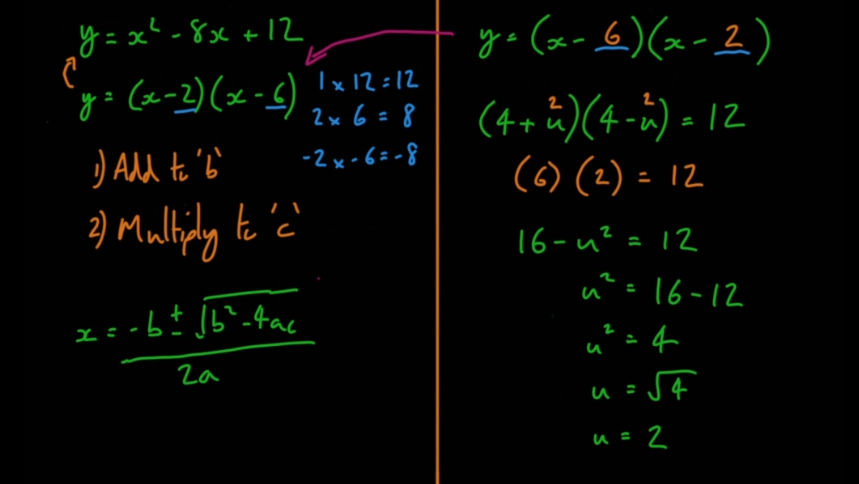 y = x² - 8x + 12
y = (x-2)(x-6)
1 x 12 = 12
2 x 6 = 8
-2 x -6 = -8
1) Add to 'b'
2) Multiply to 'c'
x = -b ± √b² - 4ac
2a
y = (x - 6)(x - 2)
2 2
(4+u)(4-u) = 12
(6) (2) = 12
16 - u² = 12
u² = 16 - 12
u² = 4
u = √4
u = 2